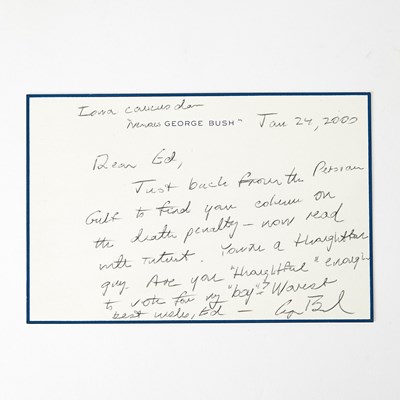 Iowa caucus day
"nervous GEORGE BUSH" Jan 24, 2000
Dear Ed,
Just back from the Persian
Gulf to find your column on
the death penalty - now read
with interest. You're a thoughtful
guy. Are you "thoughtful" enough
to vote for my "boy"? Warest
best wishes, Ed —